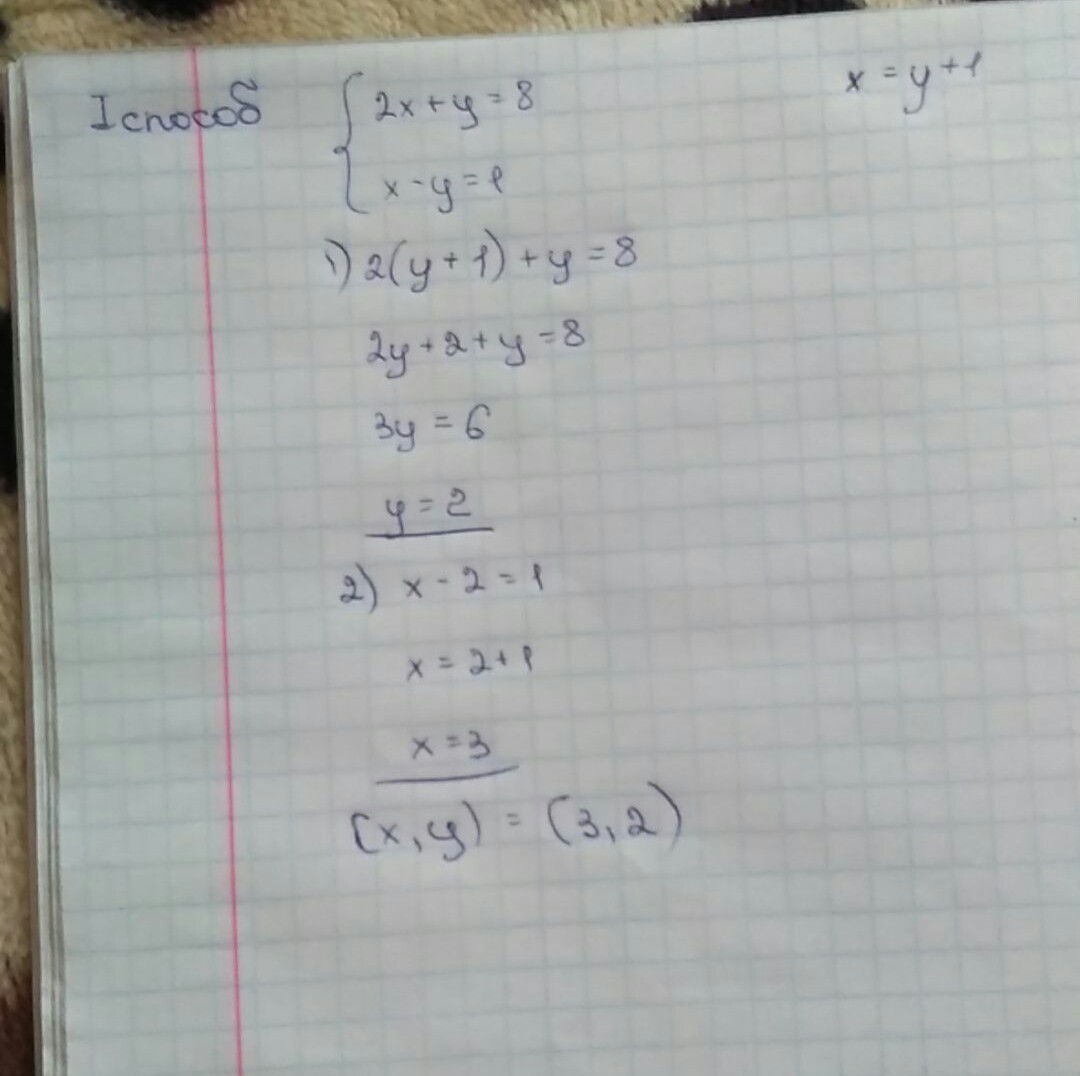 I способ
2x + y = 8
x = y + 1
x - y = 1
1) 2(y + 1) + y = 8
2y + 2 + y = 8
3y = 6
y = 2
2) x - 2 = 1
x = 2 + 1
x = 3
(x, y) = (3, 2)